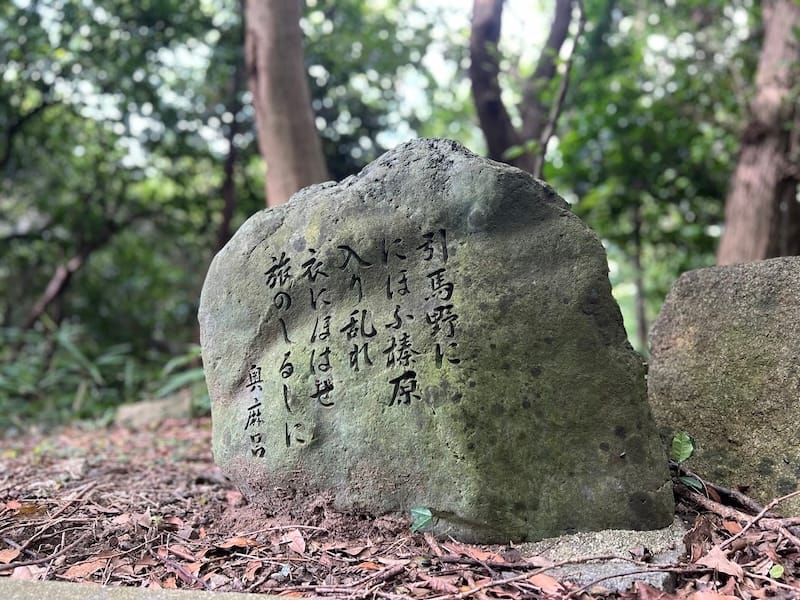 引馬野に
にほふ榛原
入り乱れ
衣にほはせ
旅のしるしに
奥麻呂